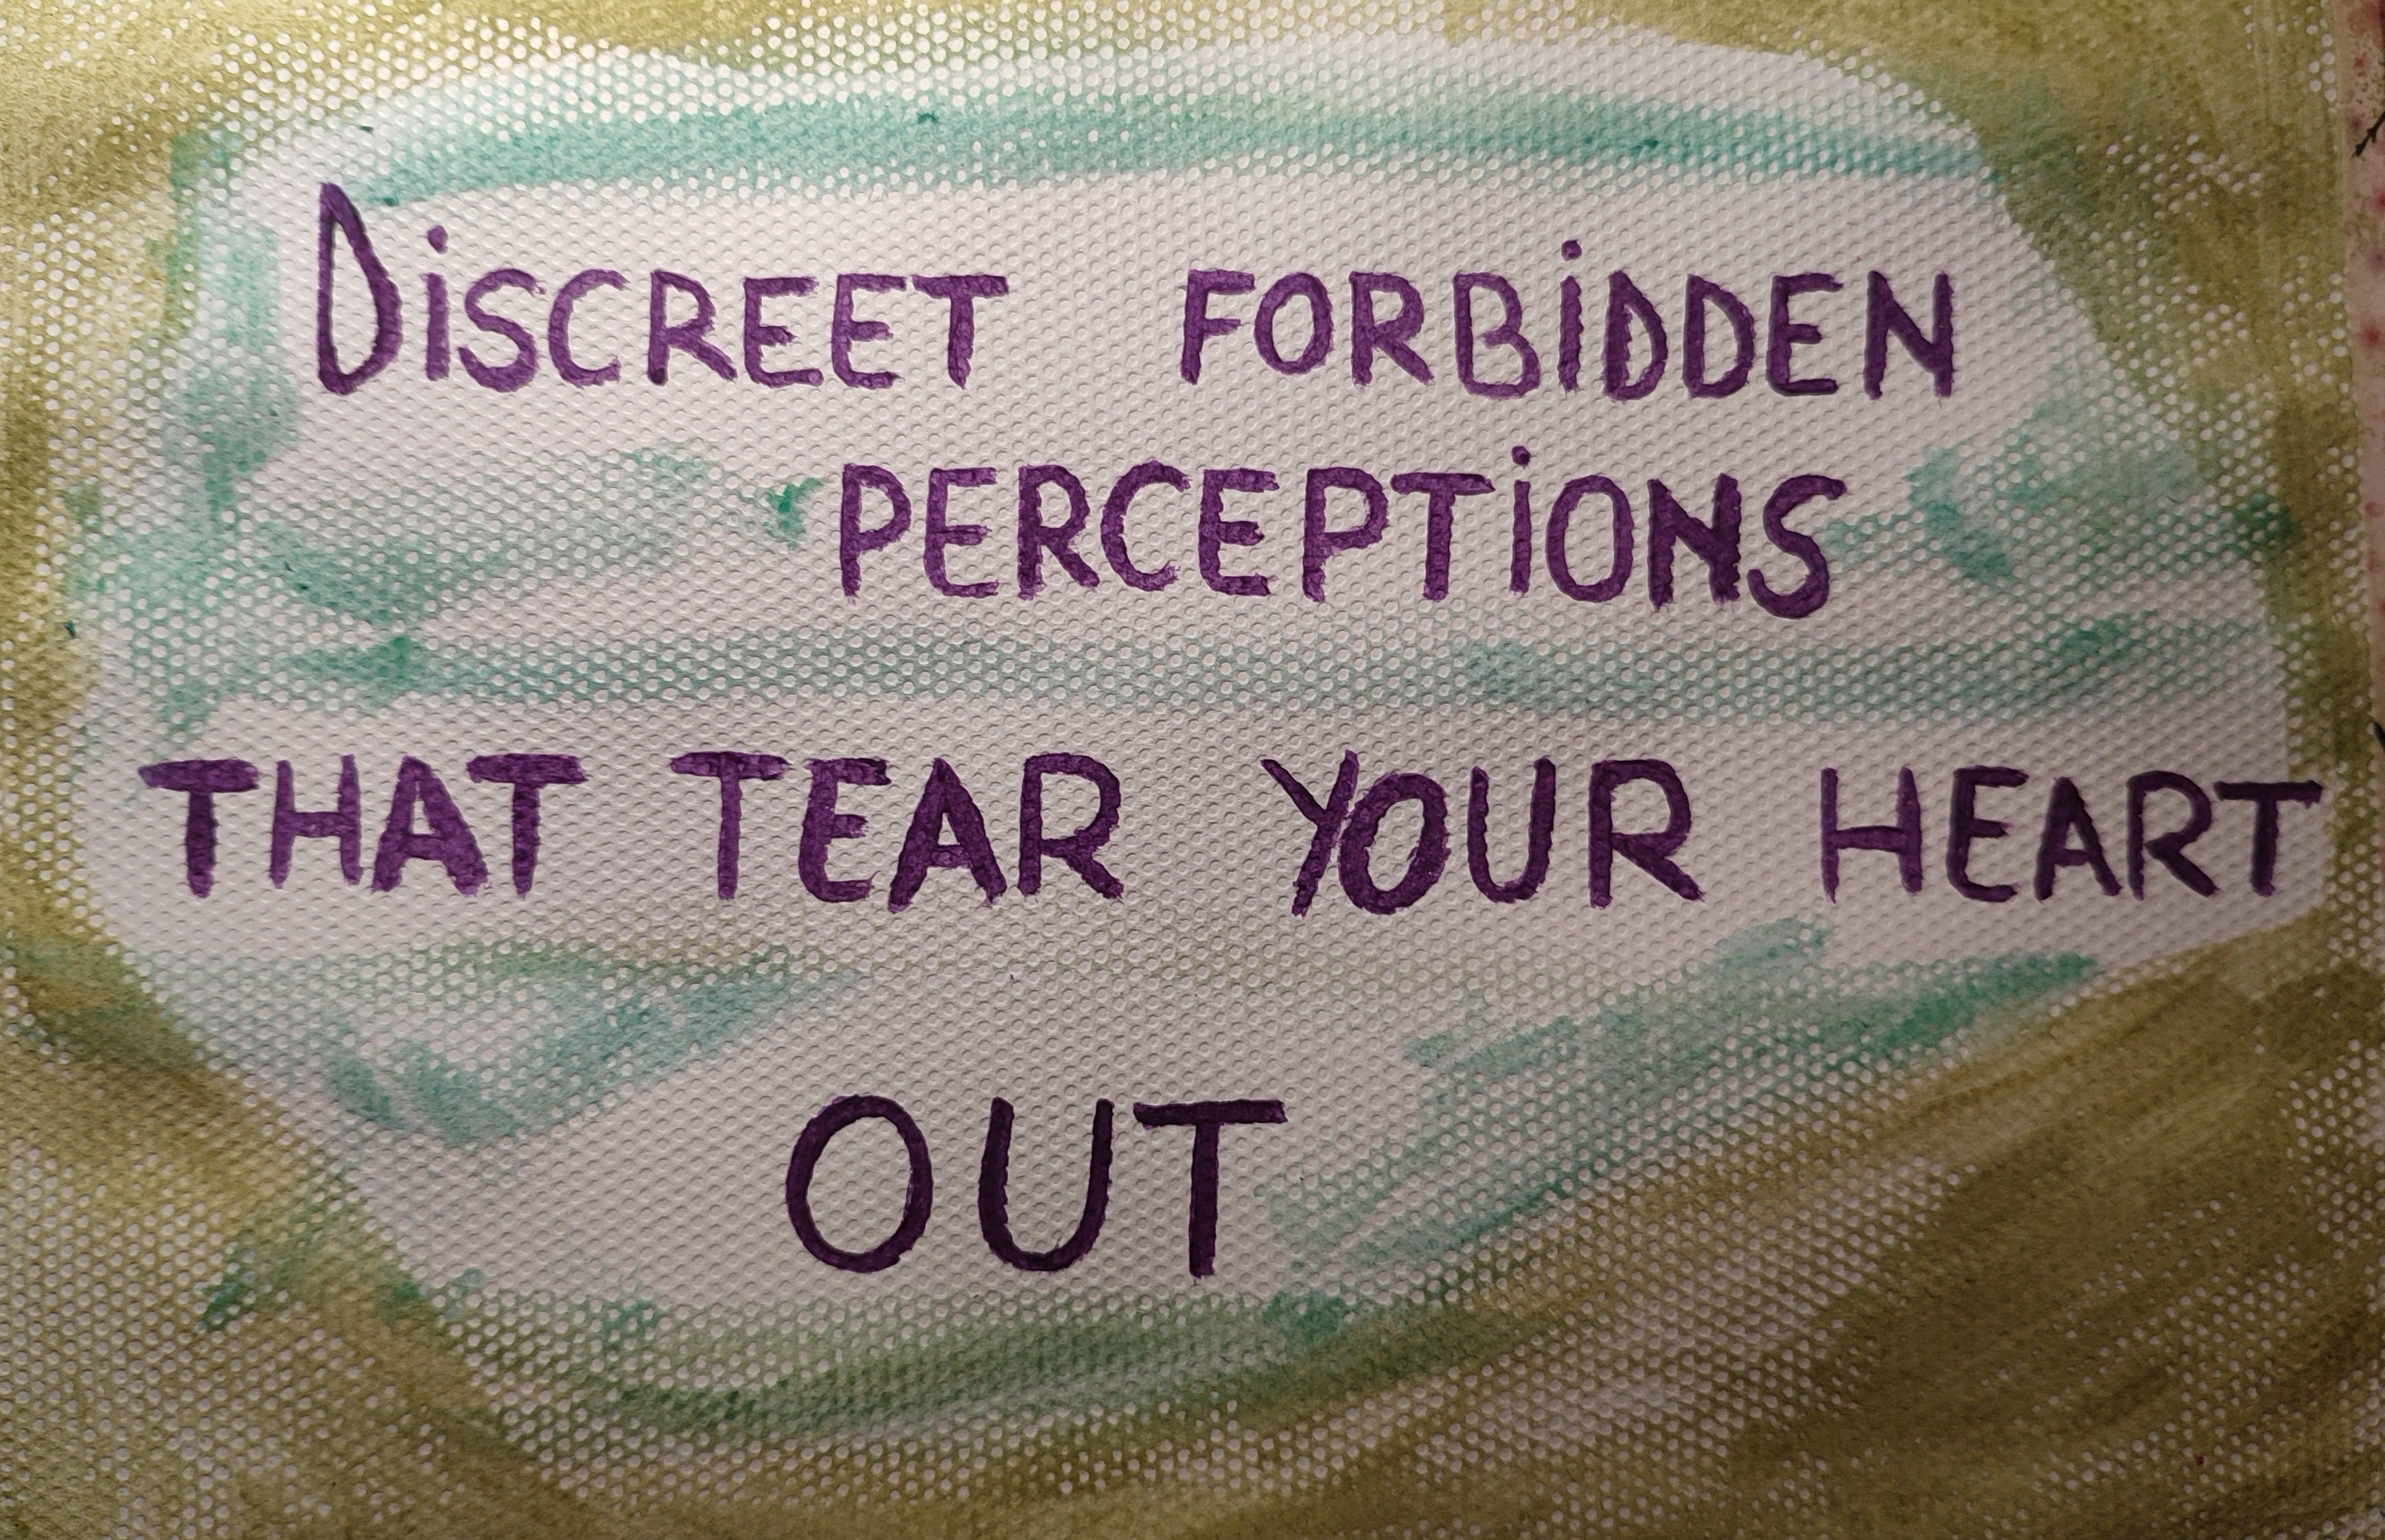 DiSCREET FORBiDDEN
PERCEPTiONS
THAT TEAR YOUR HEART
OUT